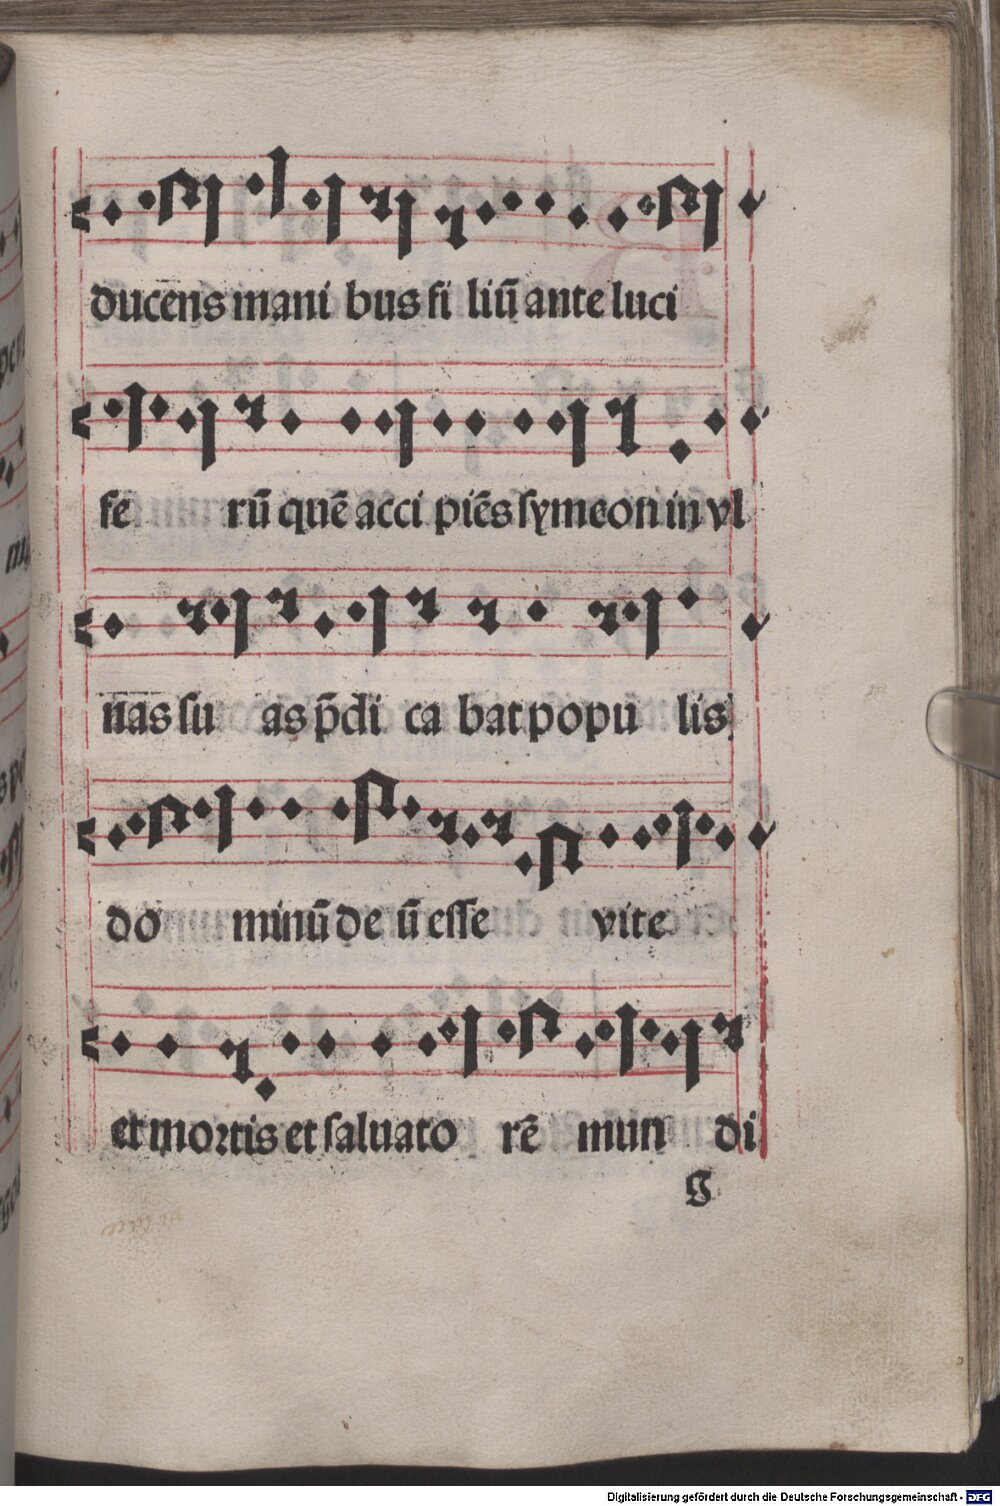 ducēns mani bus fi liū ante luci
fe rū quē acci piēs ſymeon in vl
nas ſu as p̄di ca bat popu lis
do minū de ū eſſe vite
et mortis et ſaluato rē mun di
G
Digitalisierung gefördert durch die Deutsche Forschungsgemeinschaft - DFG